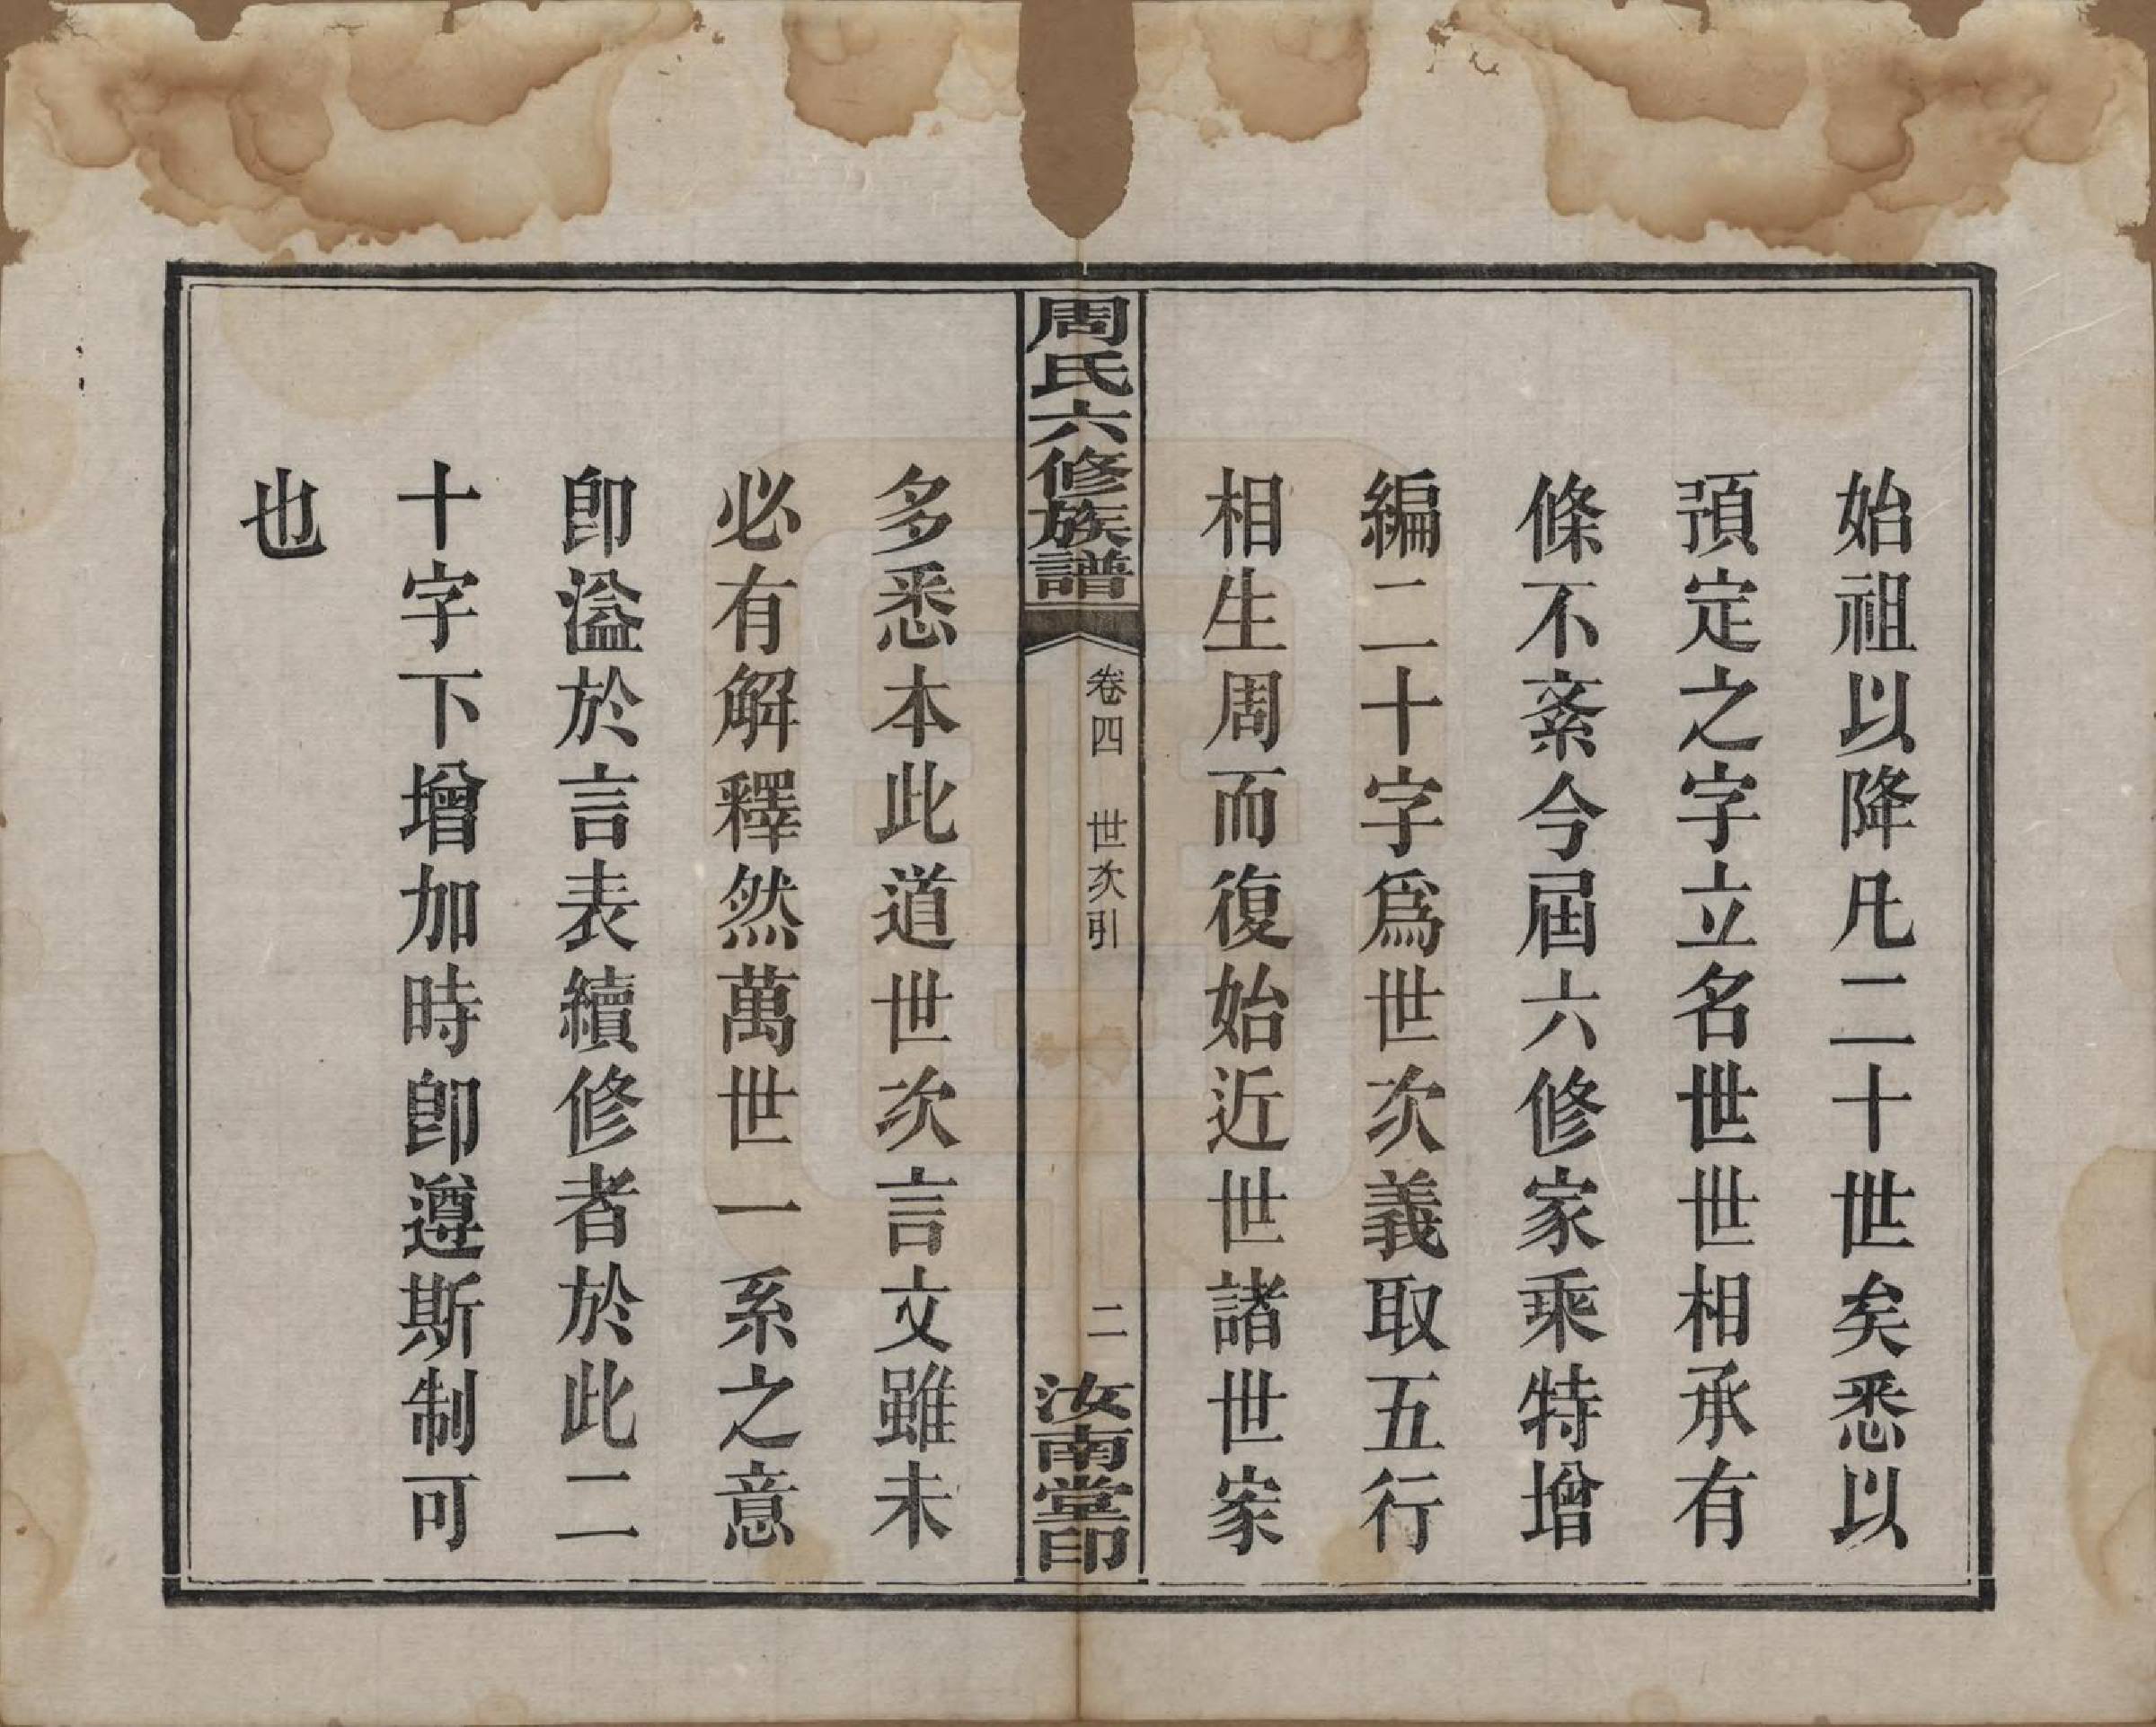 始祖以降凡二十世矣悉以
預定之字立名世世相承有
條不紊今屆六修家乘特增
編二十字爲世次義取五行
相生周而復始近世諸世家
周氏六修族譜
卷四 世次引
二
汝南堂印
多悉本此道世次言文雖未
必有解釋然萬世一系之意
卽溢於言表續修者於此二
十字下增加時卽遵斯制可
也